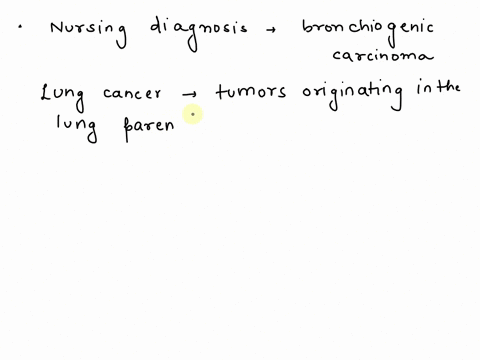 • Nursing diagnosis → bronchiogenic
carcinoma
Lung cancer → tumors originating in the
lung paren